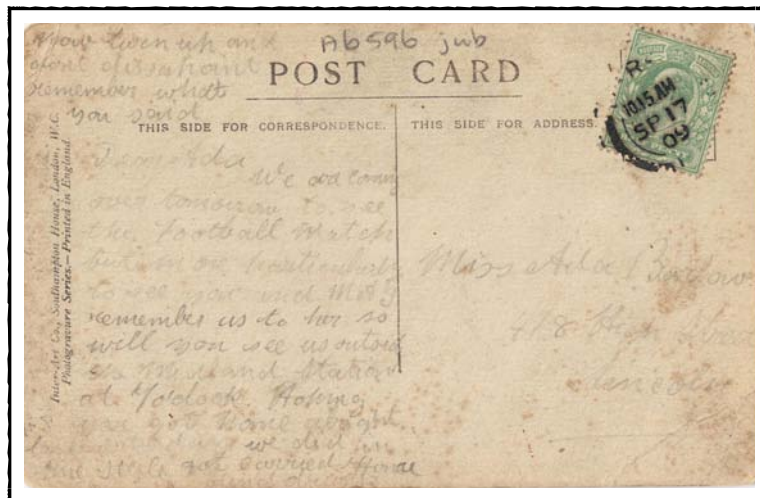 Now turn up and
dont disapoint
remember what
you said
A6596 jub
POST CARD
THIS SIDE FOR CORRESPONDENCE.
THIS SIDE FOR ADDRESS.
10.15 AM
SP 17
09
Inter-Art Co., Southampton House, London, W.C.
Photogravure Series.—Printed in England.
Dear Ada
We are coming
over tomorrow to see
the Football Match
but more particularly
to see you and
remember us to her so
will you see us outside
Midland Station
at o'clock Hoping
you got home alright
we did
got carried Home
Miss Ada Barlow
418 High Street
Lincoln